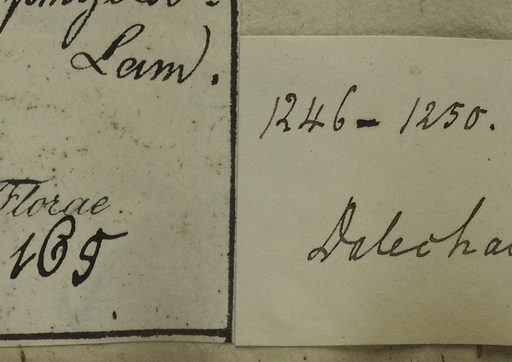 Lam.
Florae.
165
1246 - 1250.
Dalecha